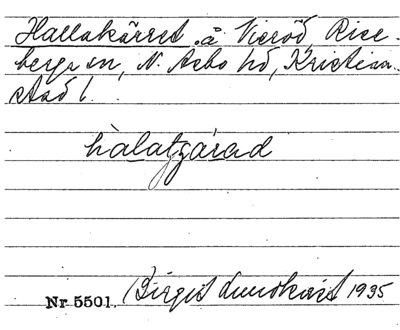 Hallakärret å Vieröd, Rise-
berga sn, N. Åsbo hd, Kristian-
stad l.
hàlatzárad
Nr 5501. Birgit Lundkvist 1935